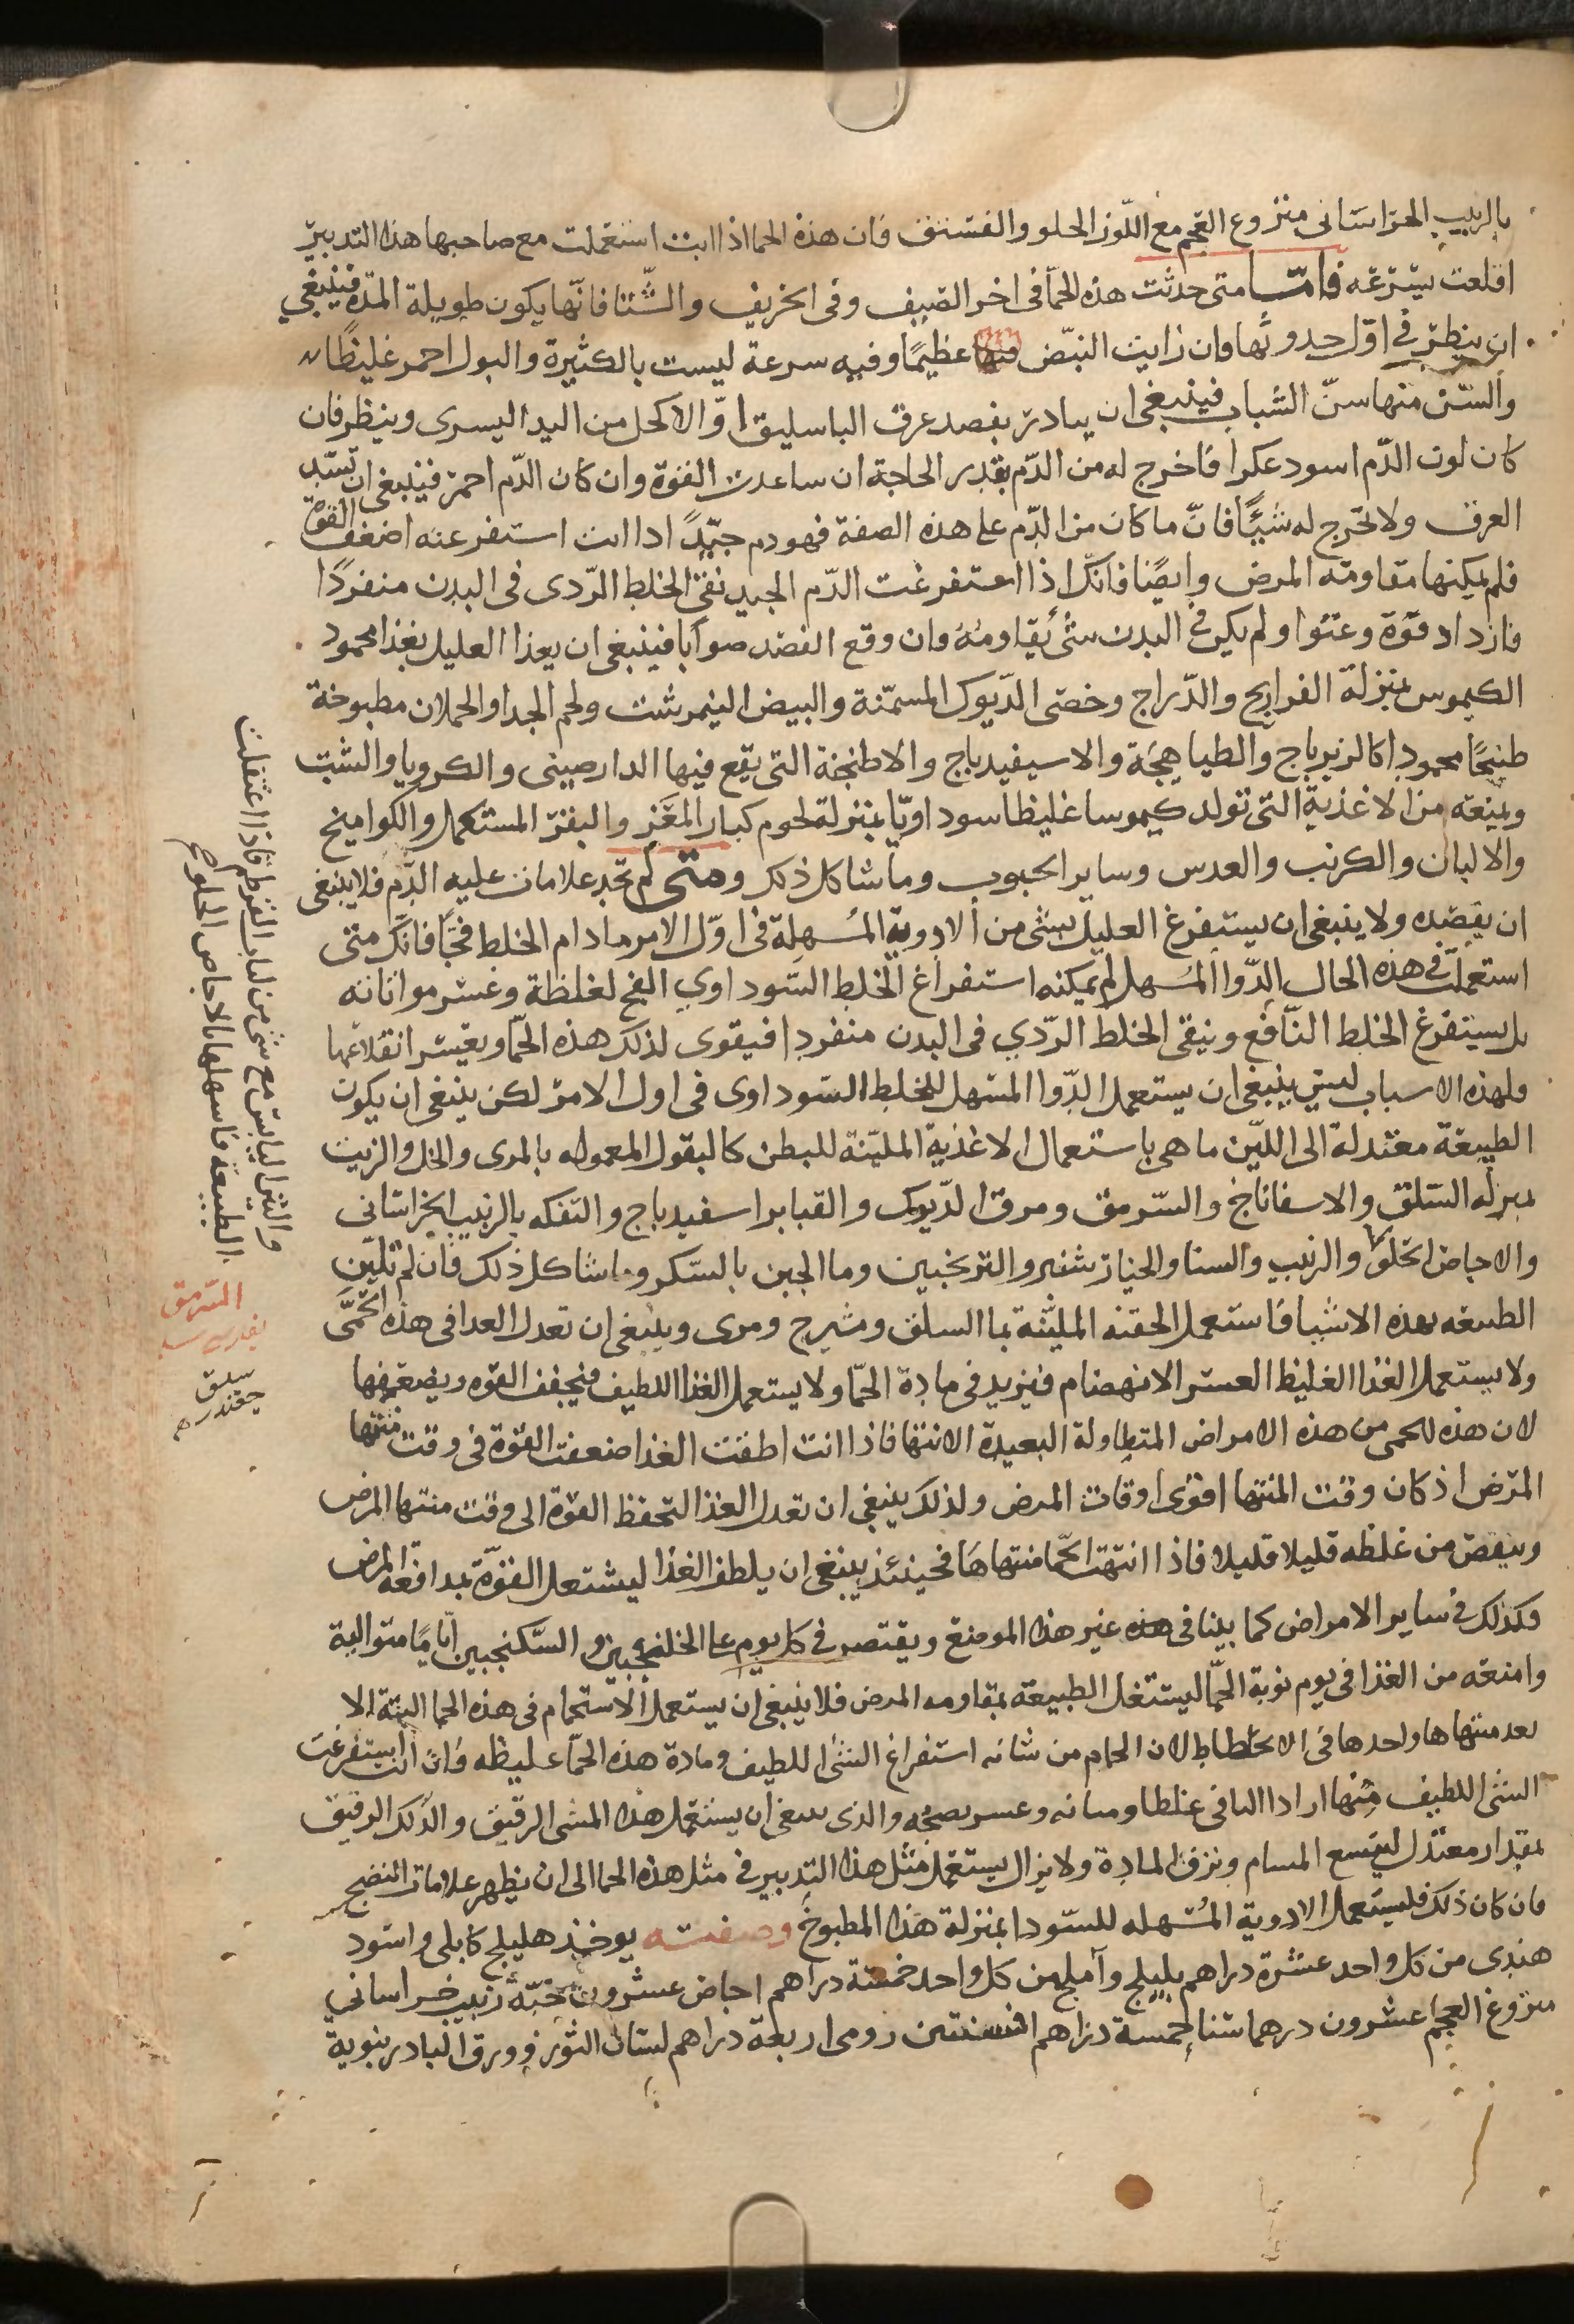 بالزبيب الخراسانى منزوع العجم مع اللّوز الحلو والفستق فان هذه الحما اذا انت استعملت مع صاحبها هذا التدبير
اقلعت بسرعه فامّا متى حدثت هذه الحمّا فى اخر الصيف وفى الخريف والشّتا فانّها يكون طويلة المدّه فينبغى
ان ينظر فى اوّل حدوثها فان رايت النبض منها عظيمًا وفيه سرعة ليست بالكثيرة والبول احمر غليظًا
والسّن منها سنّ الشباب فينبغى ان يبادر بفصد عرق الباسليق او الاكحل من اليد اليسرى وينظر فان
كان لون الدّم اسود عكرا فاخرج له من الدّم بقدر الحاجة ان ساعدت القوّة وان كان الدّم احمر فينبغى ان تسّد
العرق ولا تخرج له شيئًا فانّ ما كان من الدّم على هذه الصفة فهو دم جيّد اذا انت استفرغته اضعف القوّة
فلم يمكنها مقاومة المرض وايضًا فانّك اذا استفرغت الدّم الجيد بقى الخلط الرّدى فى البدن منفردًا
فازداد قوّة وعتوا ولم يكن فى البدن شىٔ يقاومهُ وان وقع الفصد صوابا فينبغى ان يغذا العليل بغذا محمود
الكيموس بمنزلة الفراريج والدّراج وخصى الدّيوك المسمّنة والبيض النيمرشت ولحم الجدا والحملان مطبوخة
طبخًا محمودا كالزيرباج والطباهجة والاسيفيدباج والاطبخة التى يقع فيها الدارصينى والكرويا والشبت
ويمنعه من الاغذية التى تولد كيموسا غليظا سوداويّا بمنزلة لحوم كبار المعز والبقر المستكمل والكواميخ
والالبان والكرنب والعدس وساير الحبوب وما شاكل ذلك ومتى لم تجد علامات عليه الدّم فلا ينبغى
ان يفصده ولا ينبغى ان يستفرغ العليل بشى من الادوية المُسهلة فى اوّل الامر ما دام الخلط فجّا فانّك متى
استعملت فى هذه الحال الدّوا المُسهل لم يمكنه استفراغ الخلط السّوداوى الفج لغلظة وعسر مواتاته
بل يستفرغ الخلط النّافع ويبقى الخلط الرّدي فى البدن منفردا فيقوى لذلك هذه الحمّا ويعسر انقلاعها
ولهذه الاسباب ليس ينبغى ان يستعمل الدّوا المسهل للخلط السّوداوى فى اول الامر لكن ينبغى ان يكون
الطبيعة معتدلة الى اللّين ما هى باستعمال الاغذية المليّنة للبطن كالبقول المعموله بالمرى والخل والزيت
بمنزله السّلق والاسفاناخ والسّرمق ومرق الدّيوك والقنابر اسفيدباج والتفكه بالزبيب الخراسانى
والاجاص الحلو والزبيب والسنا والخيارشنبر والترنجبين وما الجبن بالسّكر وما شاكل ذلك فان لم تليّن
الطبيعه بهذه الاشيا فاستعمل الحقنه المليّنة بما السلق وشيرج ومرى وينبغى ان تعدل الغدا فى هذه الحمّى
ولا يستعمل الغذا الغليظ العسر الانهضام فيزيد فى مادة الحمّا ولا يستعمل الغذا اللطيف فيجفف القوّه ويضعفها
لان هذه الحمى من هذه الامراض المتطاولة البعيدة الانتها فاذا انت لطفت الغذا ضعفت القوّة فى وقت منتها
المرض اذ كان وقت المنتها اقوى اوقات المرض ولذلك ينبغى ان تعدل الغذا لتحفظ القوّة الى وقت منتها المرض
وينقص من غلظه قليلا قليلا فاذا انتهت الحمّا منتهاها فحينئذ ينبغى ان يلطف الغذا ليشتغل القوّة بمدافعة المرض
وكذلك فى ساير الامراض كما بينا فى غير هذا الموضع ويقتصر فى كل يوم على الخلنجبين والسّكنجبين ايّامًا متوالية
وامنعه من الغذا فى يوم نوبة الحمّا ليشتغل الطبيعة بمقاومه المرض فلا ينبغى ان يستعمل الاستحمام فى هذه الحما البتة الا
بعد منتهاها واحدها فى الانحطاط لان الحمام من شانه استفراغ الشىٔ اللطيف ومادة هذه الحمّا غليظه فان انت استفرغت
الشىٔ اللطيف منها ازداد الباقى غلظا ومتانه وعسر نضجُه والذى ينبغى ان يستعمل هذا المشى الرقيق والدّلك الرقيق
بمقدار معتدل ليتسع المسام وترق المادة ولا يزال يستعمل مثل هذا التدبير فى مثل هذه الحما الى ان يظهر علامات النضج
فان كان ذلك فليستعمل الادوية المُسهله للسّودا بمنزلة هذا المطبوخ وصفته يوخذ هليلج كابلى واسود
هندى من كل واحد عشرة دراهم بليلج وآملج من كل واحد خمسة دراهم اجاص عشرون حبّة زبيب خراساني
منزوع العجم عشرون درهما سنا خمسة دراهم افسنتين رومى اربعة دراهم لسان الثور وورق البادرنبوية
والتين اليابس مع شى من لباب القرطم فاذا اعتقلت
الطبيعة فاسهلها بالاجاص الحلو صح
السّرمق
سلق
جغندر